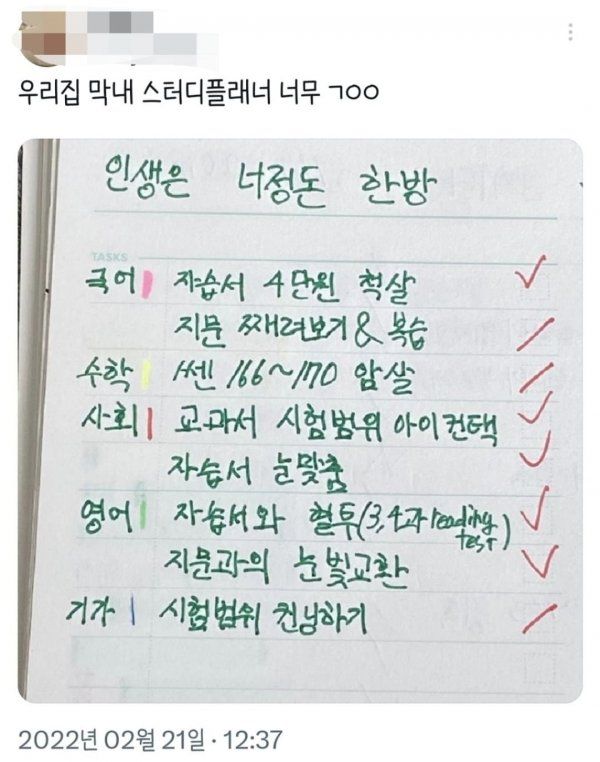 우리집 막내 스터디플래너 너무 ㄱㅇㅇ
인생은 너정돈 한방
TASKS
국어 자습서 4단원 척살
지문 째려보기 & 복습
수학 1쎈 166~170 암살
사회 교과서 시험범위 아이컨택
자습서 눈맞춤
영어 자습서와 혈투(3,4과 reading test)
지문과의 눈빛교환
기가 시험범위 컨닝하기
2022년 02월 21일 · 12:37